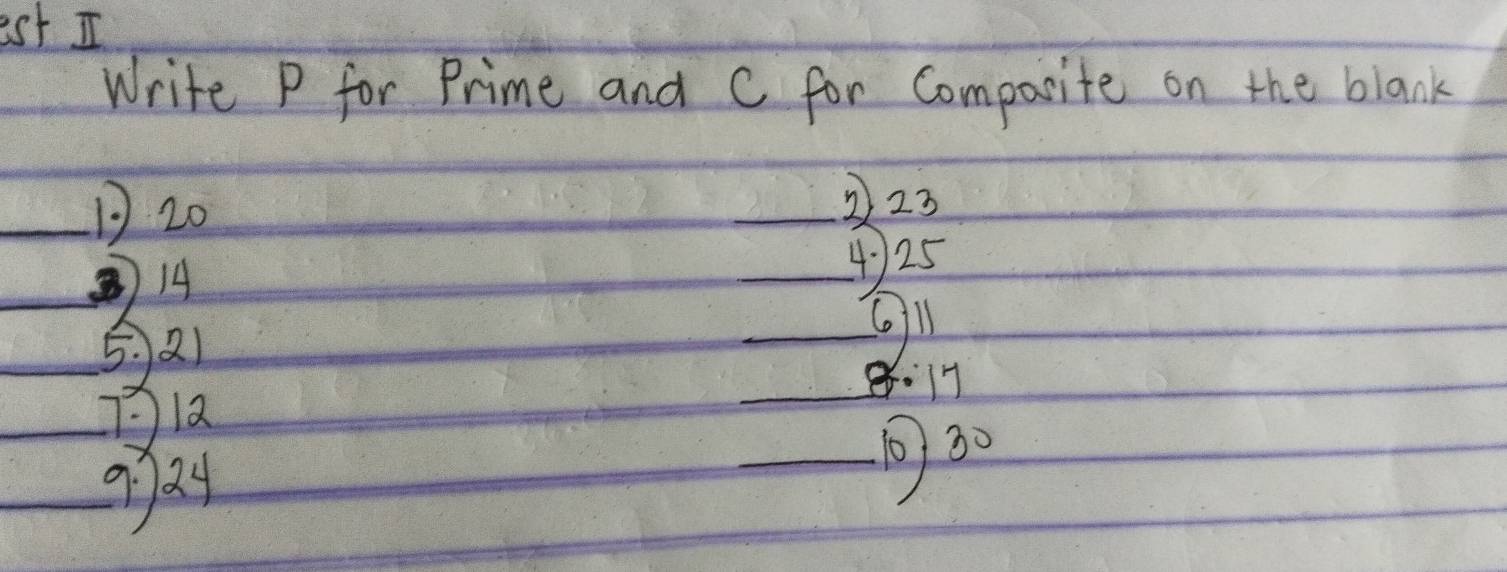 est II
Write P for Prime and C for Composite on the blank
____1.) 20 ____2) 23
____3) 14 ____4.) 25
____5.) 21 ____6) 11
____7.) 12 ____8. 17
____9.) 24 ____10) 30